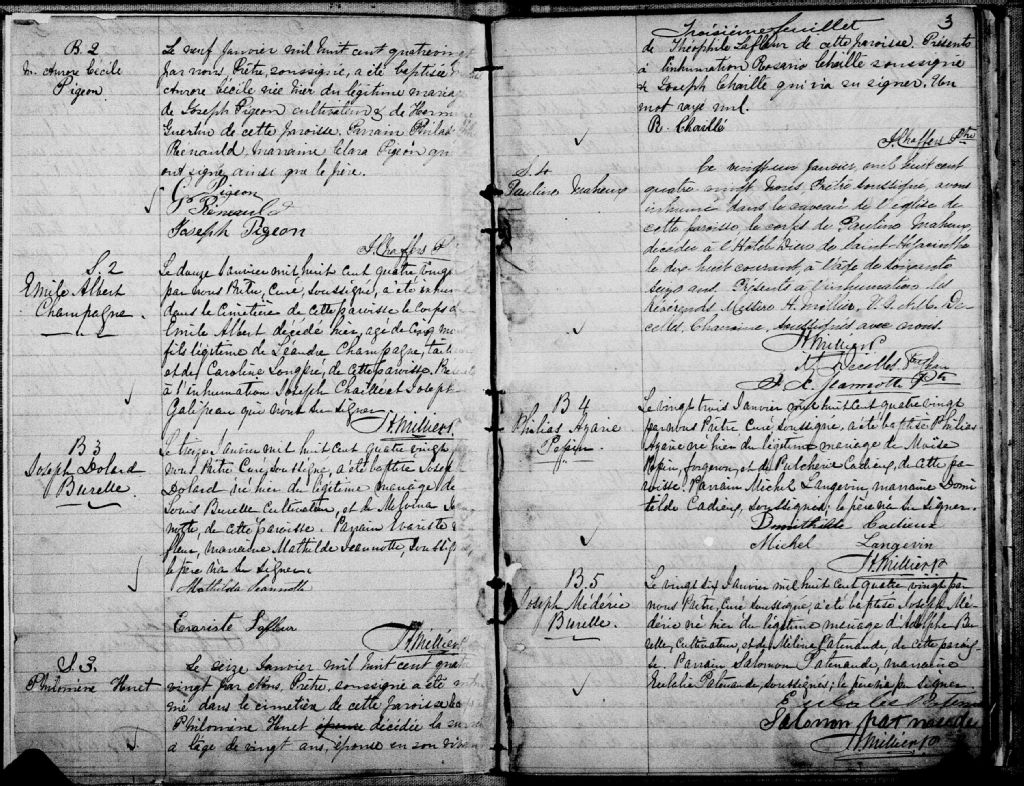 B. 2
M. Aurore Cécile
Pigeon
Le neuf Janvier mil huit cent quatre ving
par nous, Prêtre, soussigné, a été baptisée
Aurore Cécile née hier du légitime maria
de Joseph Pigeon cultivateur & de Herm
Guertin de cette paroisse. Parrain Philas
Renauld, marraine Clara Pigeon qu
ont signé, ainsi que le père.
C. Pigeon
P. Renauld
Joseph Pigeon
J. Chaffers Ptre
S. 2
Emile Albert
Champagne.
Le douze Janvier mil huit cent quatre vingt
par nous Prêtre, Curé, soussigné, a été inhum
dans le Cimetière de cette paroisse le corps d
Emile Albert décédé hier, agé de cinq mois
fils légitime de Léandre Champagne,
et de Caroline Longpré, de cette paroisse. Pré
à l'inhumation Joseph Chaillé et Joseph
Galipeau qui n'ont su signer
H. Millier Ptre
B 3
Joseph Dolard
Burelle.
Le treize Janvier mil huit cent quatre vingt
nous Prêtre Curé soussigné, a été baptisé Josep
Dolard né hier du légitime mariage de
Louis Burelle Cultivateur, et de Melvina Je
notte, de cette paroisse. Parrain Evariste
fleur, marraine Mathilde Jeannotte, soussig
le père n'a su signer.
Mathilda Jeannotte
Evariste Lafleur
H. Millier Ptre
S. 3.
Philomène Huet
Le seize Janvier mil huit cent quat
vingt par Nous, Prêtre, soussigné a été inhu
mé dans le cimetière de cette paroisse
Philomène Huet épouse décédée la
a l'age de vingt ans, épouse en son vivan
3
Troisième feuillet
de Théophile Lafleur de cette paroisse. Présents
à l'inhumation Rosario Chaillé soussigné
& Joseph Chaillé qui n'a su signer. Un
mot rayé nul.
R. Chaillé
J. Chaffers Ptre
S. 4
Pauline Maheux
Ce vingt un Janvier, mil huit cent
quatre vingt Nous, Prêtre soussigné, avons
inhumé dans le caveau de l'église de
cette paroisse, le corps de Pauline Maheux
décédée à l'Hotel Dieu de Saint-Hyacinthe
le dix huit courant, à l'âge de soixante
seize ans. Présents à l'inhumation les
Révérends Messire H. Millier, V. G. et A. De-
celles, Chanoine, soussignés avec nous.
H. Millier Ptre
A. X. Jeannotte Ptre
B 4
Philias Azarie
Pepin
Le vingt trois Janvier mil huit cent quatre vingt
par nous Prêtre Curé soussigné, a été baptisé Philias
Azarie né hier du légitime mariage de Moïse
Pepin, forgeron, et de Pulchérie Cadieux, de cette pa-
roisse. Parrain Michel Langevin, marraine Domi
tilde Cadieux, soussignés; le père n'a su signer.
Domithilde Cadieux
Michel Langevin
H. Millier Ptre
B. 5
Joseph Médérie
Burelle.
Le vingt six Janvier mil huit cent quatre vingt par
nous Prêtre, Curé soussigné, a été baptisé Joseph Mé-
dérie né hier du légitime mariage d'Adolphe Bu-
relle, Cultivateur, et de Mélina Patenaude de cette parois-
se. Parrain Salomon Patenaude, marraine
Eulalie Patenaude, soussignés; le père n'a pu signer
Eulalie Patenaude
Salomon patenaude
H. Millier Ptre